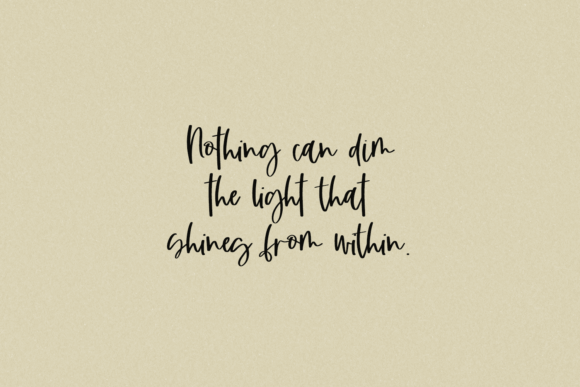 Nothing can dim
the light that
shines from within.